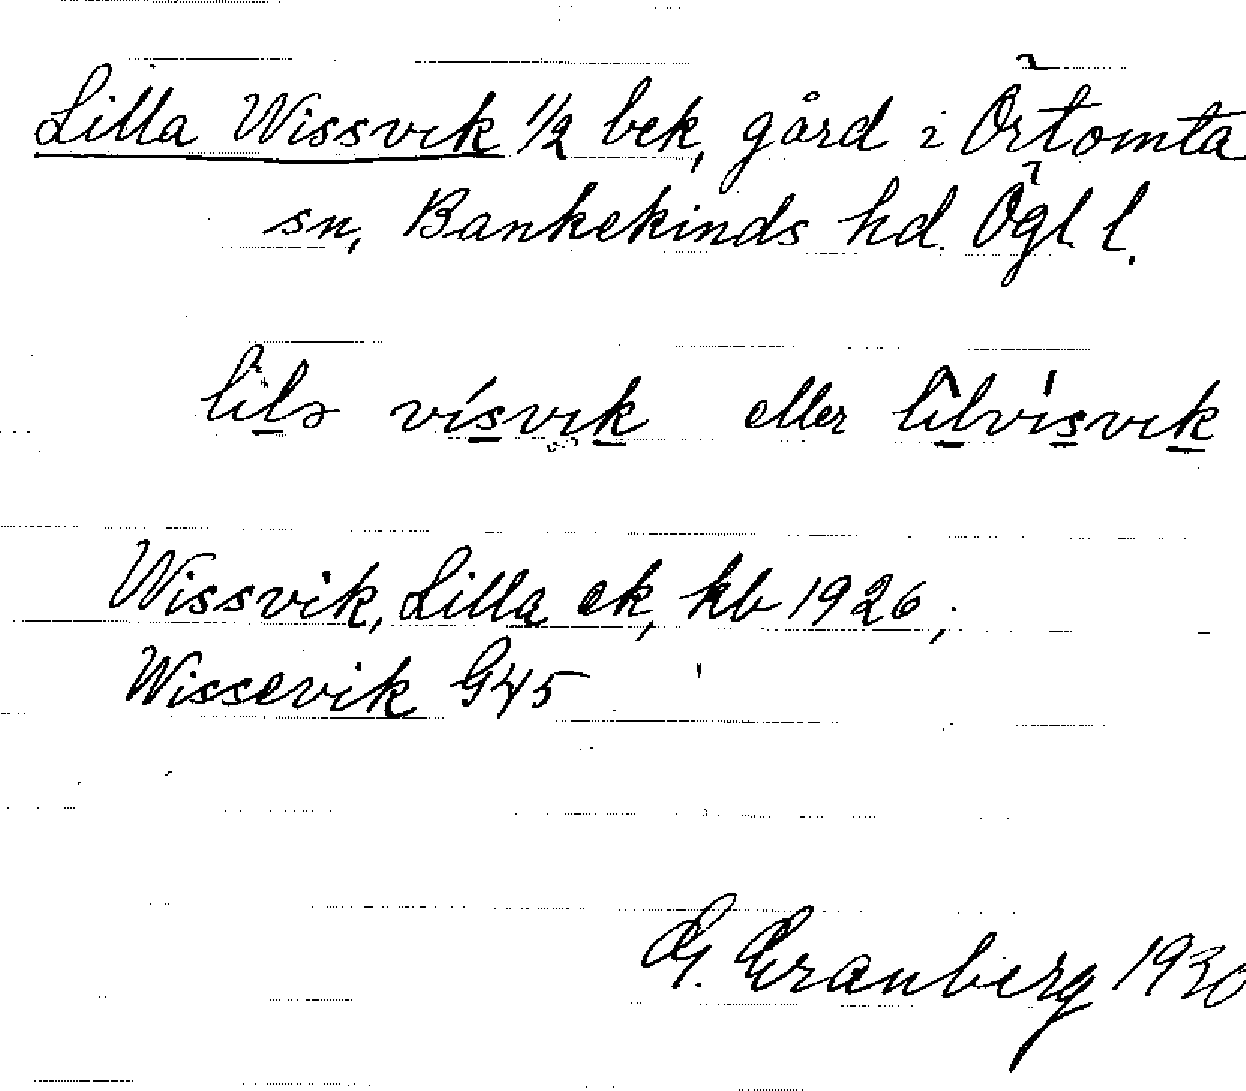 Lilla Wissvik 1/2 bek, gård i Örtomta
sn, Bankekinds hd. Ögl l.
lilə vísvik eller lilvisvik
Wissvik, Lilla ek, kb 1926,
Wissevik G45
G. Granberg 1930